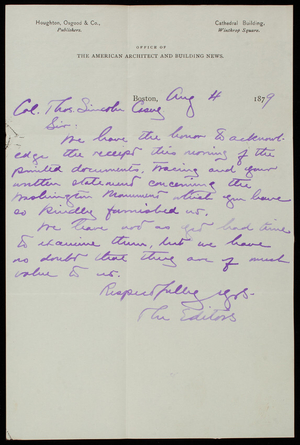 Houghton, Osgood & Co., Cathedral Building,
Publishers. Winthrop Square.
OFFICE OF
THE AMERICAN ARCHITECT AND BUILDING NEWS.
Boston, Aug 4 1879
Col. Thos. Lincoln Casey
Sir:
We have the honor to acknowl-
edge the receipt this morning of the
printed documents, tracing and your
written statement concerning the
Washington Monument which you have
so kindly furnished us.
We have not as yet had time
to examine them, but we have
no doubt that they are of much
value to us.
Respectfully yrs.
The Editors